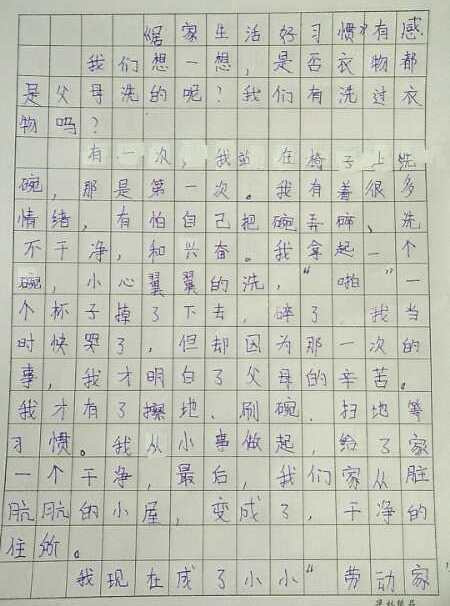 《居家生活好习惯》有感
我们想一想，是否衣物都
是父母洗的呢？我们有洗过衣
物吗？
有一次，我站在椅子上洗
碗，那是第一次。我有着很多
情绪，有怕自己把碗弄碎、洗
不干净，和兴奋。我拿起一个
碗，小心翼翼的洗，“啪”一
个杯子掉了下去，碎了 我当
时快哭了，但却因为那一次的
事，我才明白了父母的辛苦。
我才有了擦地、刷碗、扫地等
习惯。我从小事做起，给了家
一个干净，最后，我们家从脏
肮肮的小屋，变成了，干净的
住所。
我现在成了小小“劳动家